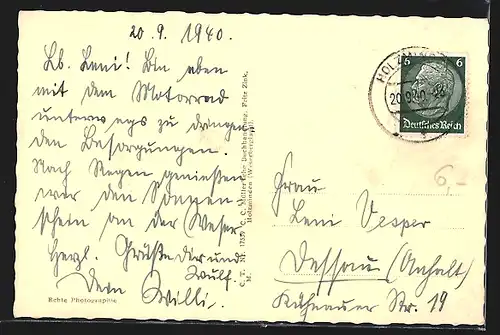 20.9.1940.
Lb. Leni! Bin eben
mit dem Motorrad
unterwegs zu dringen
den Besorgungen.
Nach Regen genießen
wir den Sonnen-
schein an der Weser
Herzl. Grüße dir und
Wulf.
Dein Willi.
Echte Photographie
C. C. Müller'sche Buchhandlung, Fritz Zink,
Holzminden (Weserbergland).
HOLZMINDEN
20.9.40
6 6
Deutsches Reich
6,-
Frau
Leni Vesper
Dessau (Anhalt)
Kühnauer Str. 19